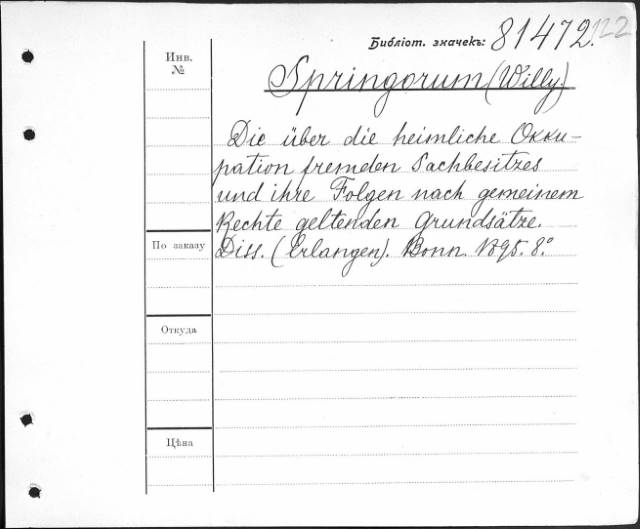 Библіот. значекъ: 81472. 122
Инв.
№
Springorum (Willy)
Die über die heimliche Okku-
pation fremden Sachbesitzes
und ihre Folgen nach gemeinem
Rechte geltenden Grundsätze.
Diss. (Erlangen). Bonn 1895. 8.°
По заказу
Откуда
Цѣна